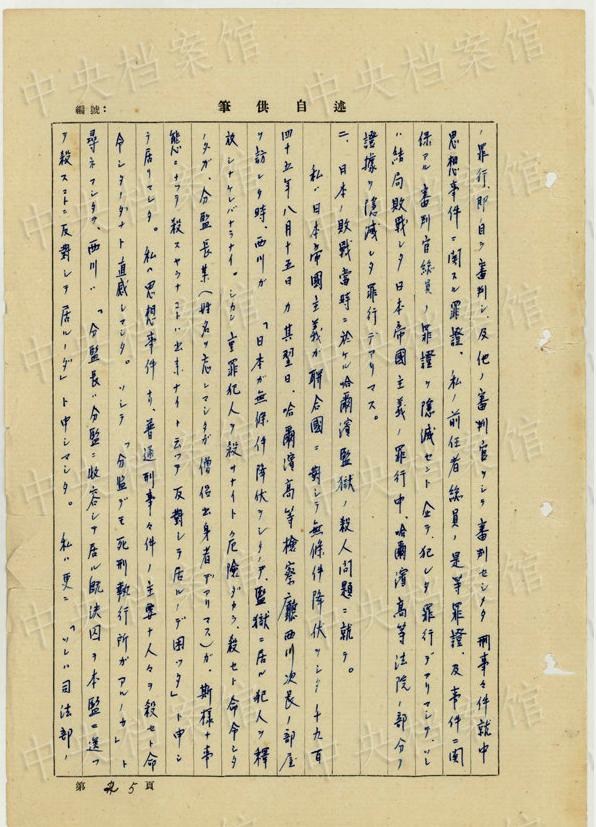 述自供筆
編號：
ノ罪行、即自ラ審判シ、及他ノ審判官ヲシテ審判セシメタ刑事々件就中
思想事件ニ関スル罪證、私ノ前任者総員ノ是等罪證、及事件ニ関
係アル審判官総員ノ罪證ヲ隠滅セント企テ、犯シタ罪行デアリマシテ、ソレ
ハ結局敗戦シタ日本帝國主義ノ罪行中、哈爾濱高等法院ノ部分ノ
證據ヲ隠滅シタ罪行デアリマス。
二、日本ノ敗戦當時ニ於ケル哈爾濱監獄ノ殺人問題ニ就テ。
私ハ日本帝國主義ガ聯合國ニ對シテ無條件降伏ヲシタ千九百
四十五年八月十五日カ其翌日、哈爾濱高等檢察廳西川次長ノ部屋
ヲ訪レタ時、西川ガ「日本ガ無條件降伏ヲシタノデ、監獄ニ居ル犯人ヲ釋
放シナケレバナラナイ。シカシ重罪犯人ヲ殺サナイト危険ダカラ、殺セト命令シタ
ノダガ、分監長某(姓名ヲ忘レマシタガ僧侶出身者デアリマス)ガ、斯様ナ事
態ニナッテ殺スヤウナコトハ出来ナイト云ッテ反對シテ居ルノデ困ッタ」ト申シ
テ居リマシタ。私ハ思想事件ヤ普通刑事々件ノ主要ナ人々ヲ殺セト命
令シタノダナト直感シマシタ。ソシテ「分監デモ死刑執行所ガアルノカ」ト
尋ネマシタラ、西川ハ「分監長ハ分監ニ收容シテ居ル既決囚ヲ本監ニ送ッ
テ殺スコトニ反對シテ居ルノダ」ト申シマシタ。私ハ更ニ「ソレハ司法部ノ
第 5 頁
中央档案馆